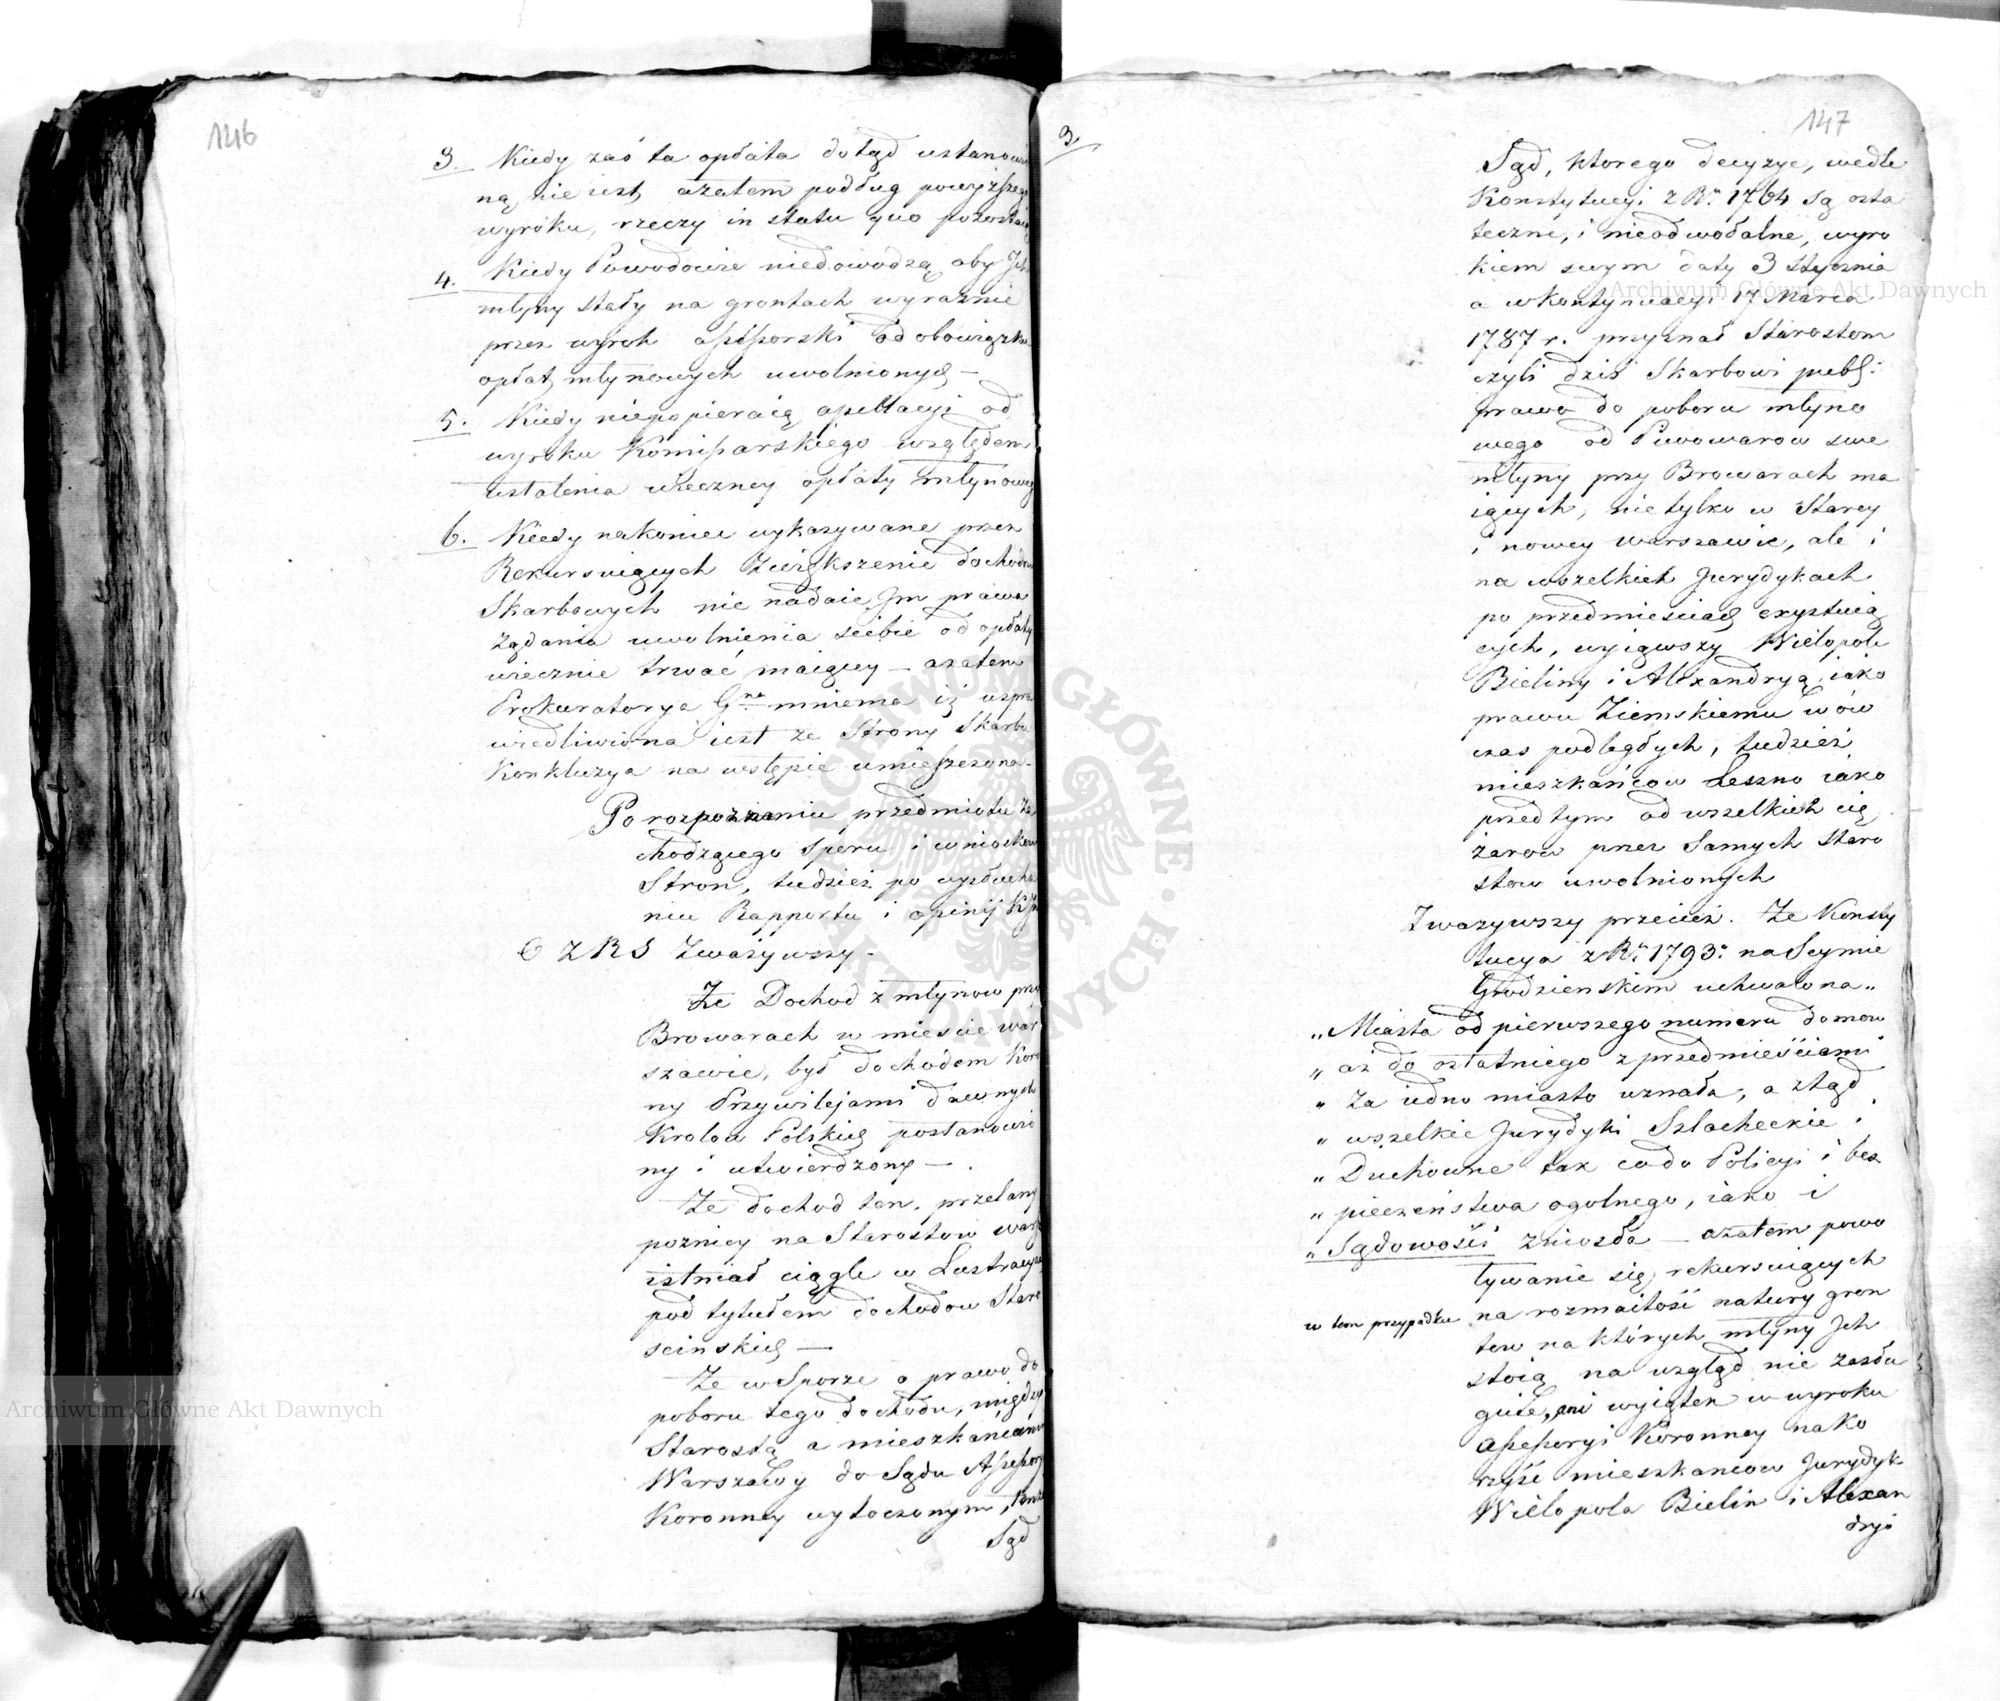 146
3. Kiedy zaś ta opłata dotąd ustanowio
ną nie iest, azatem podług powyższego
wyroku, rzeczy in statu quo pozostaią
4. Kiedy Powodowie niedowodzą aby Ich
młyny stały na grontach wyraźnie
przez wyrok assessorski od obowiązku
opłat młynowych uwolnionych —
5. Kiedy niepopieraią apellacyi od
wyroku Kommissarskiego względem
ustalenia wieczney opłaty młynowey
6. Kiedy nakoniec wykazywane przez
Rekursuiących zwiększenie dochodow
Skarbowych nie nadaie Im prawa
żądania uwolnienia siebie od opłaty
wiecznie trwać maiącey — azatem
Prokuratorya Gna mniema iż uspra
wiedliwiona iest ze Strony Skarbu
Konkluzya na wstępie umieszczona.
Po rozpoznaniu przedmiotu za
chodzącego sporu i wniosków
Stron, tudzież po wysłucha
niu Rapportu i opinij
O Z R S Zważywszy -
Że Dochod z młynow przy
Browarach w mieście War
szawie, był dochodem Koro
ny Przywilejami dawnych
Krolow Polskich postanowio
ny i utwierdzony —.
Że dochod ten, przelany
pozniey na Starostow warsz
istniał ciągle w Lustracyach
pod tytułem dochodow Staro
scinskich —
Że w Sporze o prawo do
poboru tego dochodu, między
Starostą a mieszkańcami
Warszawy do Sądu Assessory
Koronney wytoczonym,
Sąd
147
3/
Sąd, ktorego decyzye, wedle
Konstytucyi z Rn 1764 są osta
teczne, i nieodwołalne, wyro
kiem swym daty 3 Stycznia
a w kontynuacyi 17 Marca
1787 r. przyznał Starostom
czyli dziś Skarbowi publ:
prawo do poboru młyno
wego od Piwowarow swe
młyny przy Browarach ma
iących, nie tylko w Starey
i nowey Warszawie, ale i
na wszelkich Jurydykach
po przedmieściach exystuią
cych, wyiąwszy Wielopole
Bieliny i Alexandryą, iako
prawu Ziemskiemu w ów
czas podległych, tudzież
mieszkańcow Leszna iako
przedtym od wszelkich cię
żarow przez Samych Staro
stow uwolnionych
Zważywszy przecież. Że Konsty
tucya z Rn: 1793: na Seymie
Grodzienskim uchwalona„
„Miasta od pierwszego numeru domow
„ aż do ostatniego z przedmieściami
„ Za iedno miasto uznała, a ztąd
„ wszelkie Jurydyki Szlacheckie i
„ Duchowne tak co do Policyi i bez
„ pieczeństwa ogolnego, iako i
„ Sądowości zniosła — azatem powo
ływanie się rekursuiących
na rozmaitość natury gron
w tem przypadku
tow na których młyny Ich
stoią na wzgląd nie zasłu
guie, ani wyiątek w wyroku
Assessoryi Koronney na ko
rzyść mieszkancow Jurydyk
Wielopola Bielin i Alexan
dryi
Archiwum Główne Akt Dawnych
Archiwum Główne Akt Dawnych
ARCHIWUM GŁÓWNE · AKT DAWNYCH ·